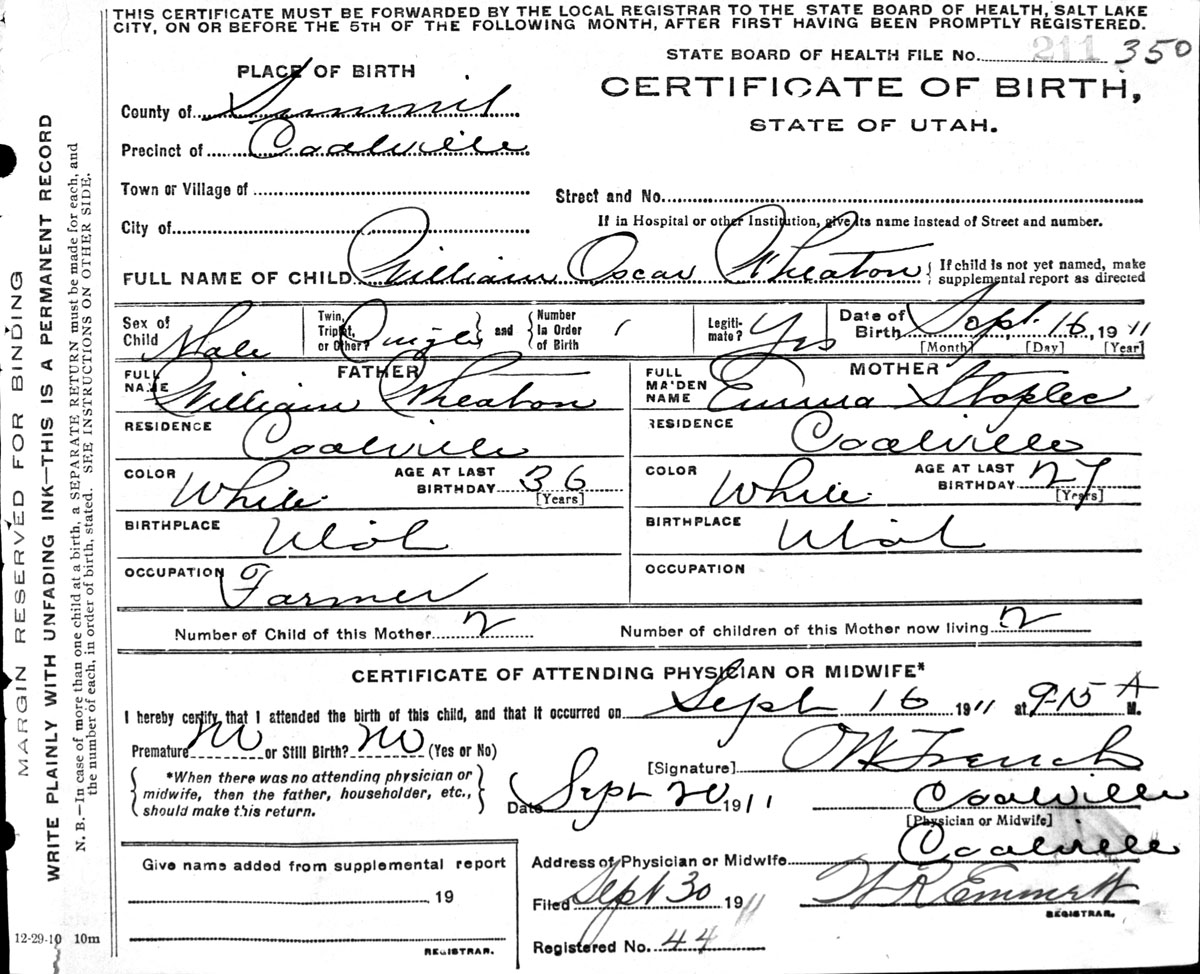 THIS CERTIFICATE MUST BE FORWARDED BY THE LOCAL REGISTRAR TO THE STATE BOARD OF HEALTH, SALT LAKE
CITY, ON OR BEFORE THE 5TH OF THE FOLLOWING MONTH, AFTER FIRST HAVING BEEN PROMPTLY REGISTERED.
STATE BOARD OF HEALTH FILE NO. 211 350
PLACE OF BIRTH
CERTIFICATE OF BIRTH,
STATE OF UTAH.
County of Summit
Precinct of Coalville
Town or Village of
Street and No.
City of
If in Hospital or other Institution, give its name instead of Street and number.
FULL NAME OF CHILD William Oscar Wheaton { If child is not yet named, make
supplemental report as directed
Sex of Child Male Twin, Triplet, or Other? Single } and { Number in Order of Birth 1 Legiti-mate? Yes Date of Birth Sept. 16, 1911
[Month] [Day] [Year]
FATHER
FULL NAME William Wheaton
RESIDENCE Coalville
COLOR White AGE AT LAST BIRTHDAY 36
[Years]
BIRTHPLACE Utah
OCCUPATION Farmer
MOTHER
FULL MAIDEN NAME Emma
RESIDENCE Coalville
COLOR White AGE AT LAST BIRTHDAY 27
[Years]
BIRTHPLACE Utah
OCCUPATION
Number of Child of this Mother 2 Number of children of this Mother now living 2
CERTIFICATE OF ATTENDING PHYSICIAN OR MIDWIFE*
I hereby certify that I attended the birth of this child, and that it occurred on Sept 16 1911 at 9-15 A M.
Premature No or Still Birth? No (Yes or No)
{ *When there was no attending physician or
midwife, then the father, householder, etc.,
should make this return. }
[Signature] French
Date Sept 20 1911 Coalville
[Physician or Midwife]
Address of Physician or Midwife Coalville
Filed Sept 30 1911 W R Emmett
REGISTRAR.
Registered No. 44
Give name added from supplemental report
19
REGISTRAR.
12-29-10 10m
MARGIN RESERVED FOR BINDING
WRITE PLAINLY WITH UNFADING INK—THIS IS A PERMANENT RECORD
N. B.—In case of more than one child at a birth, a SEPARATE RETURN must be made for each, and
the number of each, in order of birth, stated. SEE INSTRUCTIONS ON OTHER SIDE.